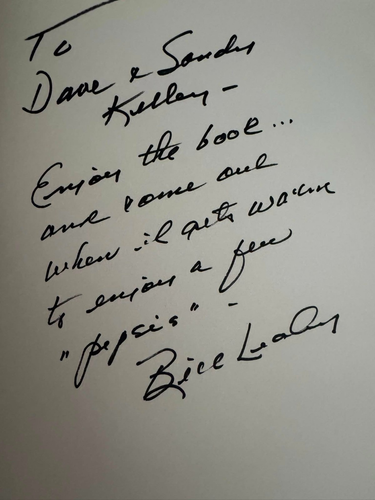 To
Dave & Sandy
Kelley -
Enjoy the book...
and come out
when it gets warm
to enjoy a few
"pepsis" -
Bill Leahy